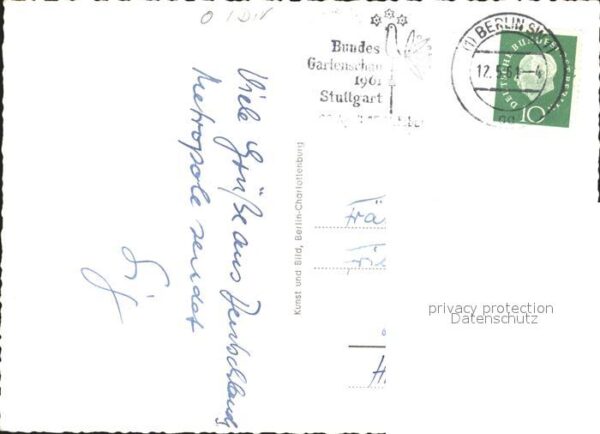 Bundes
Gartenschau
1961
Stuttgart
(1) BERLIN SW
12.5.61.-4
DEUTSCHE BUNDESPOST BERLIN
10
Viele Grüße aus Deutschlands
Metropole sendet
Kunst und Bild, Berlin-Charlottenburg
Frä
privacy protection
Datenschutz